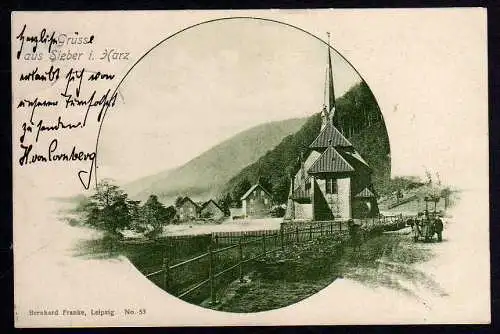 Herzliche Grüsse
aus Sieber i. Harz
erlaubt sich von
unserer Turnfahrt
zu senden.
H. von Cornberg
Bernhard Franke, Leipzig No. 53